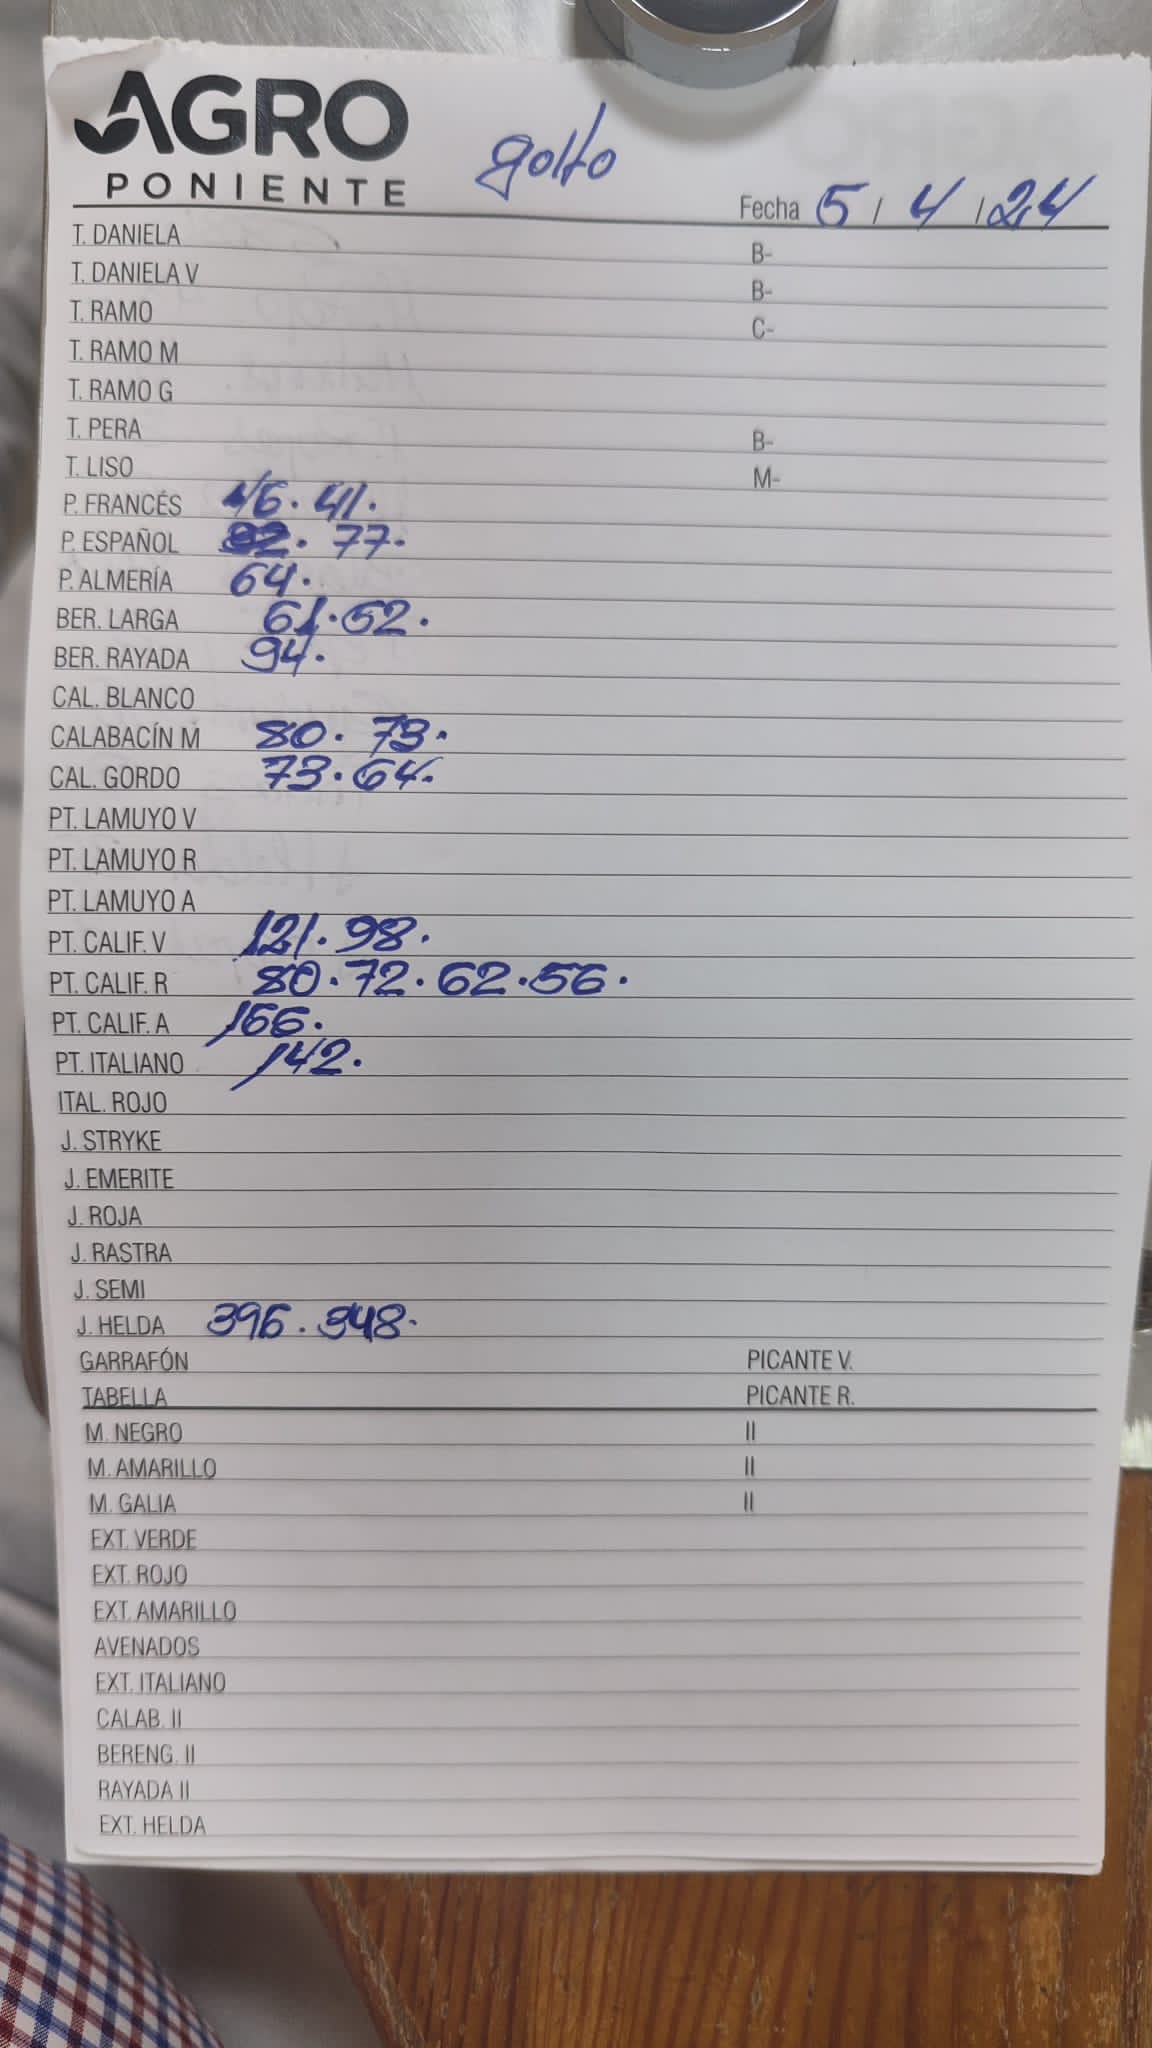 AGRO
PONIENTE
golfo
Fecha 5 / 4 / 24
T. DANIELA B-
T. DANIELA V B-
T. RAMO C-
T. RAMO M
T. RAMO G
T. PERA B-
T. LISO M-
P. FRANCÉS 46. 41.
P. ESPAÑOL 77.
P. ALMERÍA 64.
BER. LARGA 61. 52.
BER. RAYADA 94.
CAL. BLANCO
CALABACÍN M 80. 73.
CAL. GORDO 73. 64.
PT. LAMUYO V
PT. LAMUYO R
PT. LAMUYO A
PT. CALIF. V 121. 98.
PT. CALIF. R 80. 72. 62. 56.
PT. CALIF. A 166.
PT. ITALIANO 142.
ITAL. ROJO
J. STRYKE
J. EMERITE
J. ROJA
J. RASTRA
J. SEMI
J. HELDA 396. 348.
GARRAFÓN PICANTE V.
TABELLA PICANTE R.
M. NEGRO II
M. AMARILLO II
M. GALIA II
EXT. VERDE
EXT. ROJO
EXT. AMARILLO
AVENADOS
EXT. ITALIANO
CALAB. II
BERENG. II
RAYADA II
EXT. HELDA